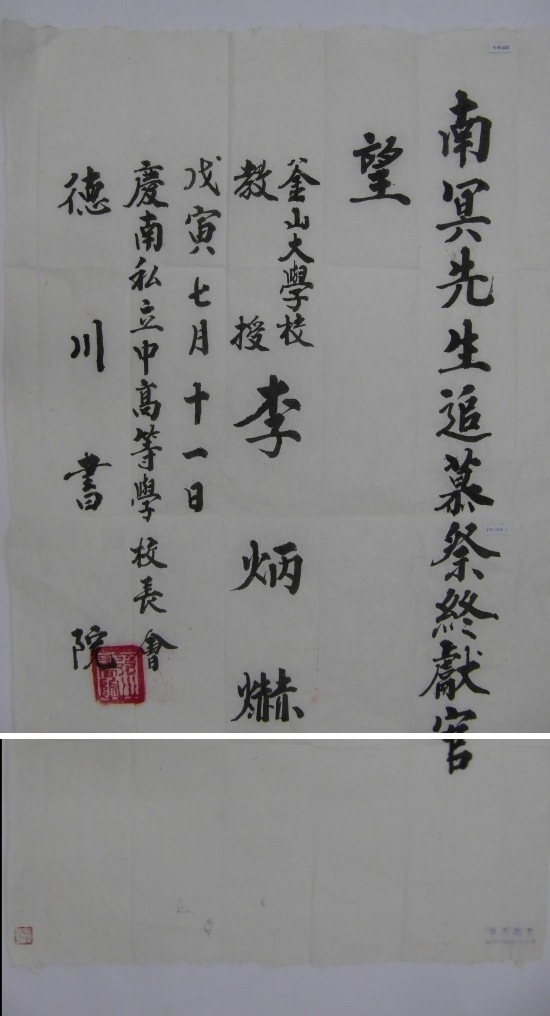 南冥先生追慕祭終獻官
望
釜山大學校
教授 李炳爀
戊寅七月十一日
慶南私立中高等學校長會
德川書院